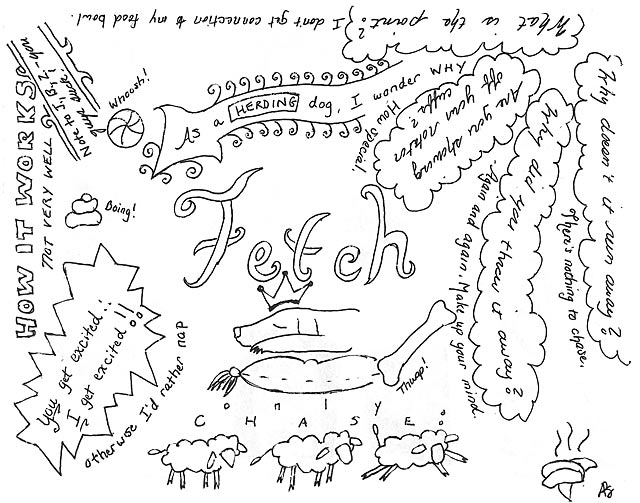 What is the point?
I don't get connection to my food bowl.
As a HERDING dog, I wonder WHY
Whoosh!
Note to
guys
you
HOW IT WORKS
NOT VERY WELL
Boing!
Are you showing
off your rotator
cuffs?
How special.
Why did you throw it away?
Again and again. Make up your mind.
Why doesn't it run away?
There's nothing to chase.
Fetch
You get excited..
I get excited!!
otherwise I'd rather nap
Thwap!
only
CHASE: